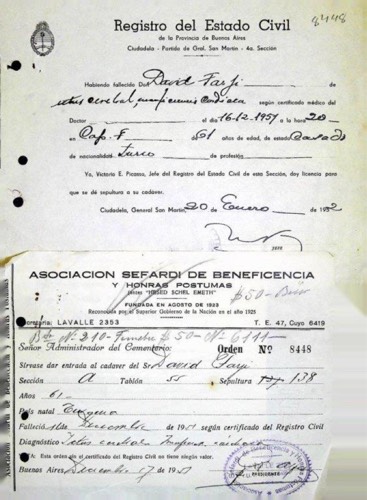 8448
Registro del Estado Civil
de la Provincia de Buenos Aires
Ciudadela - Partido de Gral. San Martín - 4a. Sección
Habiendo fallecido Don David Farji de
cerebral, insuficiencia cardiaca según certificado médico del
Doctor el día 16-12-1951 a la hora 20-
en F de 61 años de edad, de estado Casado
de nacionalidad Turco de profesión
Yo, Victorio E. Picasso, Jefe del Registro del Estado Civil de esta Sección, doy licencia para
que se dé sepultura a su cadaver.
Ciudadela, General San Martín, 20 Enero de 1952
JEFE
ASOCIACION SEFARDI DE BENEFICENCIA
Y HONRAS POSTUMAS
(antes "HESED SCHEL EMETH") $50-
FUNDADA EN AGOSTO DE 1923
Reconocida por el Superior Gobierno de la Nación en el año 1925
Secretaría: LAVALLE 2353 T. E. 47, Cuyo 6419
Nº 210- $50- Nº 6111-
Señor Administrador del Cementerio: Orden Nº 8448
Sírvase dar entrada al cadaver del Sr David Farji
Sección A Tablón 55 Sepultura 138
Años 61-
País natal
Falleció 16 Diciembre de 1951 según certificado del Registro Civil
Diagnóstico
Sin certificado del Registro Civil esta orden no tiene ningún valor.
Buenos Aires, Diciembre 17 de 1951
PRESIDENTE